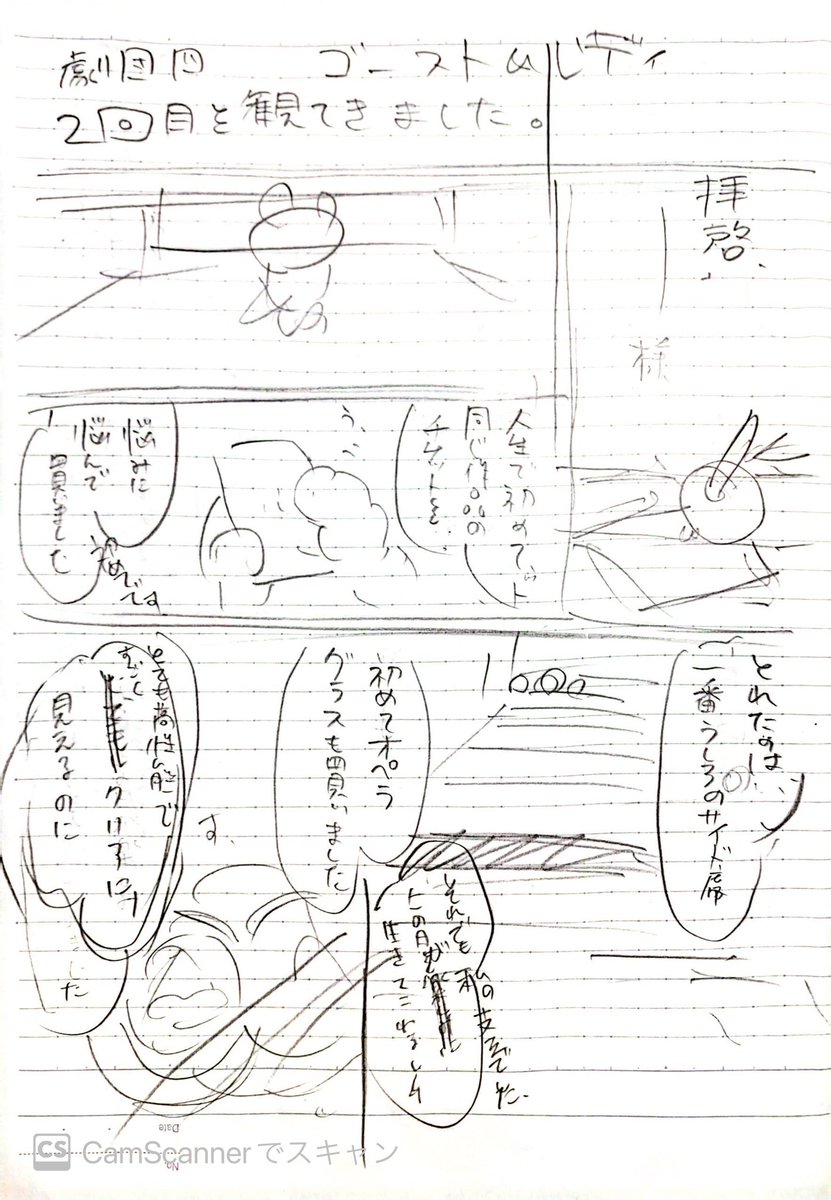 劇団四 ゴースト&レディ
2回目を観てきました。
拝啓
様
人生で初めて
同じ作品の
チケットを…
う…
悩みに
悩んで
買いました
初めてです
とれたのは…
一番うしろのサイド席
初めてオペラ
グラスも買いました
とても高性能で
すごく
クリアに
見えるのに
す、
した
それでも私の支えでした
生きて
Date
No
CS CamScannerでスキャン